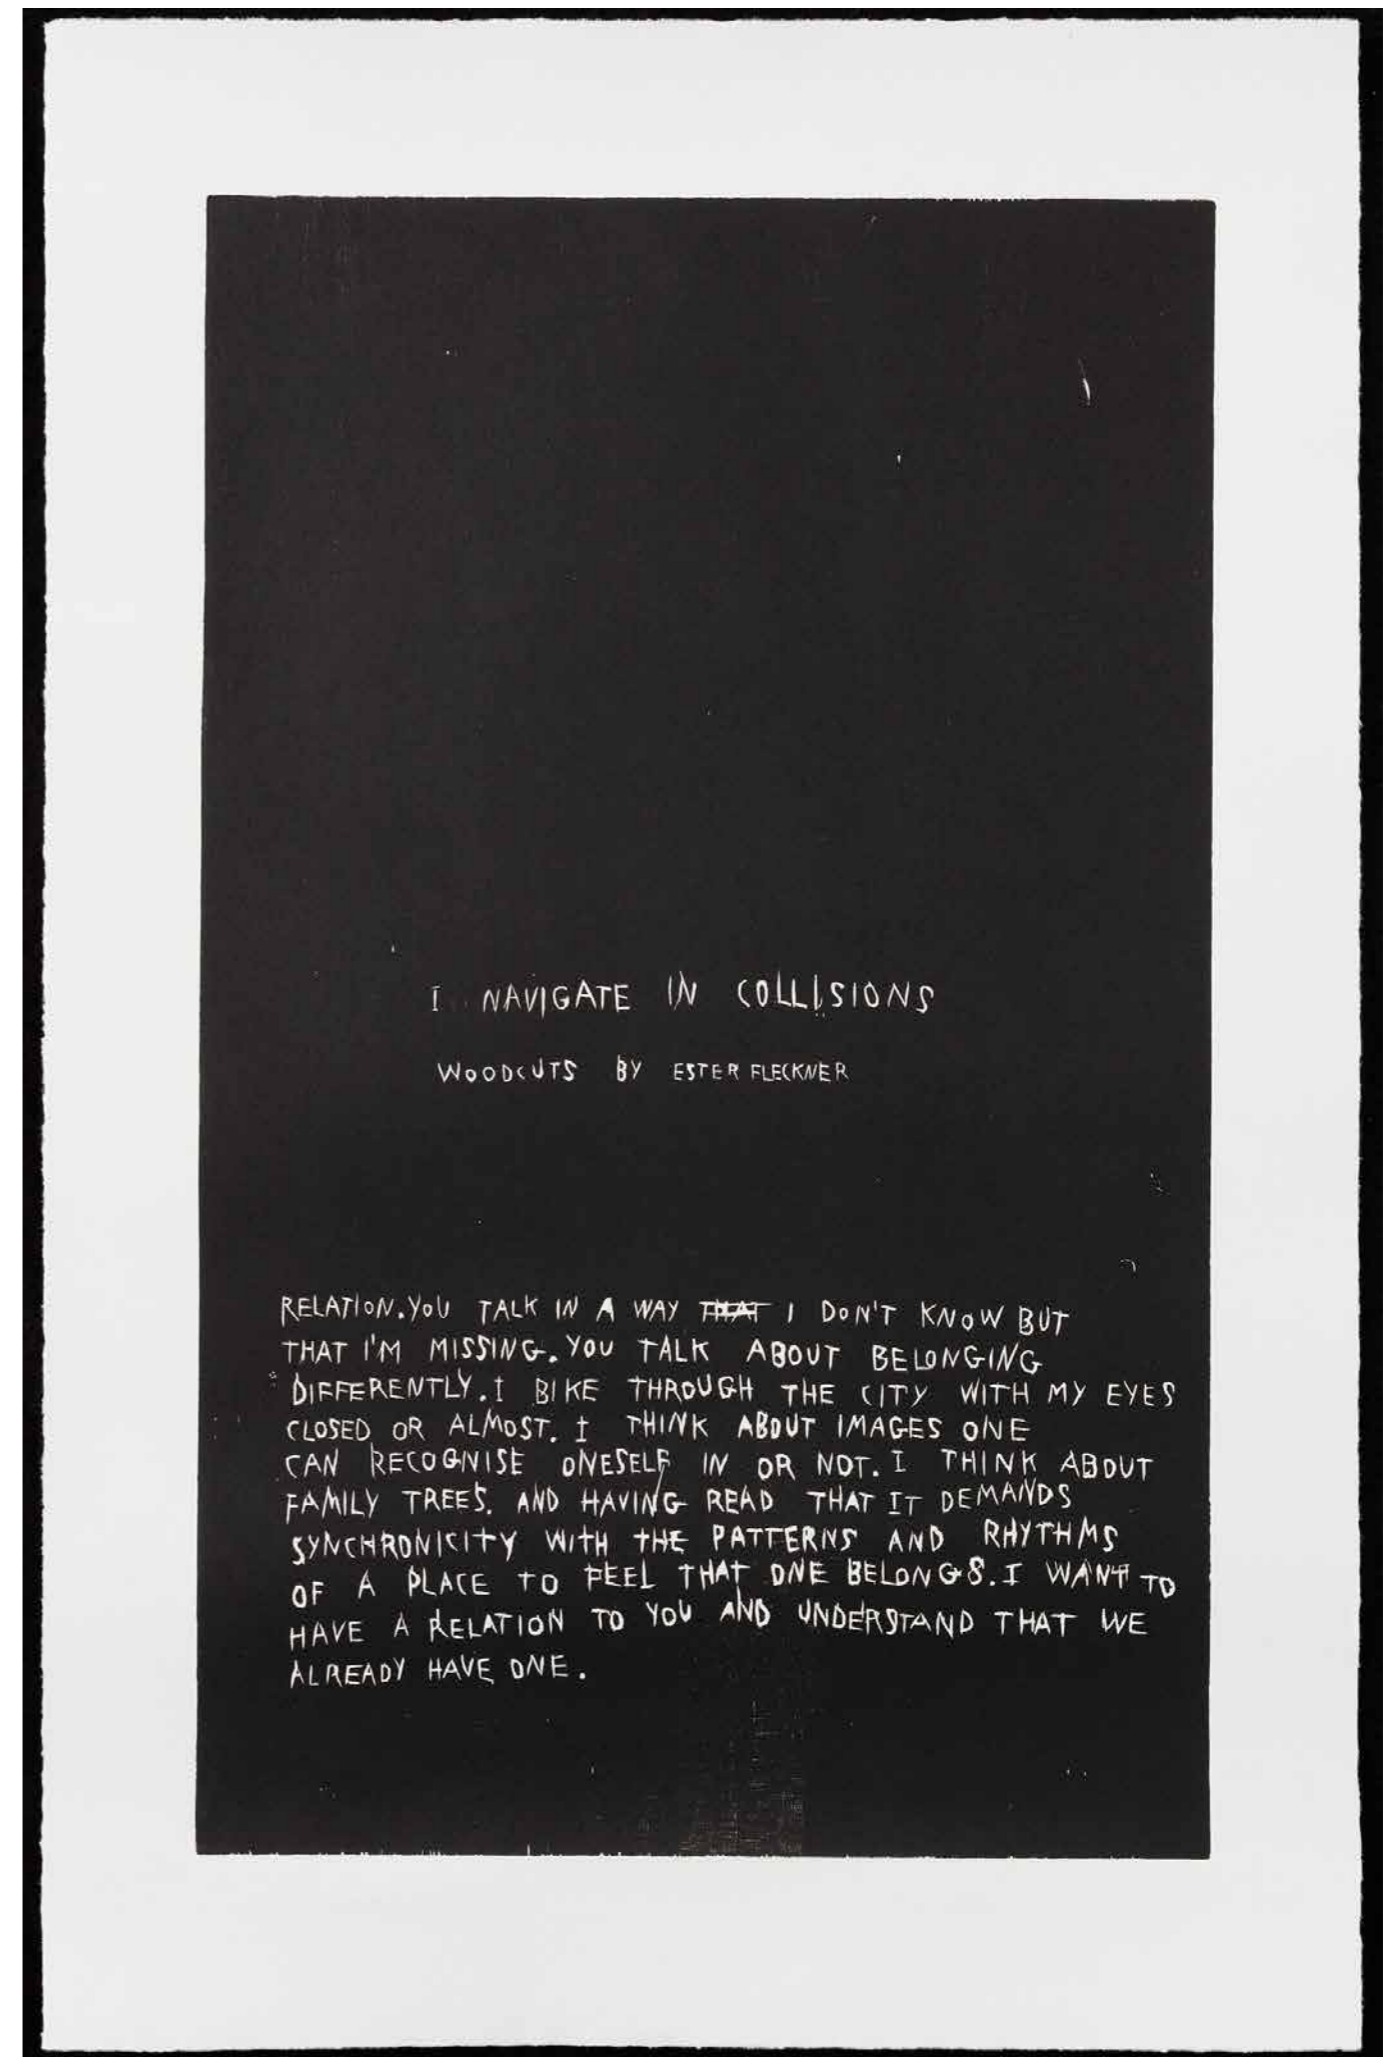 I NAVIGATE IN COLLISIONS
WOODCUTS BY ESTER FLECKNER
RELATION. YOU TALK IN A WAY THAT I DON'T KNOW BUT
THAT I'M MISSING. YOU TALK ABOUT BELONGING
DIFFERENTLY. I BIKE THROUGH THE CITY WITH MY EYES
CLOSED OR ALMOST. I THINK ABOUT IMAGES ONE
CAN RECOGNISE ONESELF IN OR NOT. I THINK ABOUT
FAMILY TREES. AND HAVING READ THAT IT DEMANDS
SYNCHRONICITY WITH THE PATTERNS AND RHYTHMS
OF A PLACE TO FEEL THAT ONE BELONGS. I WANT TO
HAVE A RELATION TO YOU AND UNDERSTAND THAT WE
ALREADY HAVE ONE.